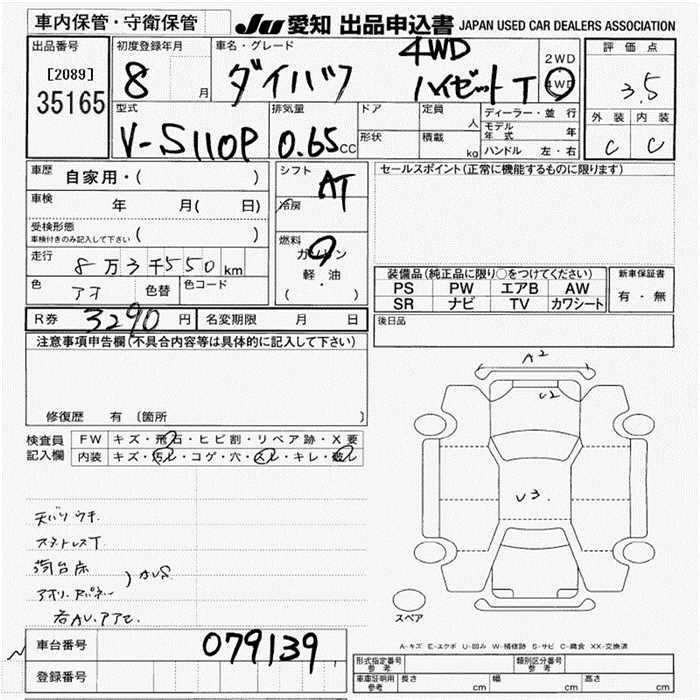 車内保管・守衛保管
JU 愛知 出品申込書 JAPAN USED CAR DEALERS ASSOCIATION
出品番号
[2089]
35165
初度登録年月
8 月
車名・グレード
4WD
ダイハツ ハイゼットT
2WD
4WD
評価点
3.5
外装 内装
C C
型式
V-S110P
排気量
0.65 CC
ドア
形状
定員 人
積載 kg
ディーラー・並行
モデル年式 年
ハンドル 左・右
車歴 自家用・( )
車検 年 月( 日)
受検形態
車検付きのみ記入して下さい ( )
走行 8万3千550 km
色 アオ 色替 色コード
シフト AT
冷房
燃料
ガソリン
軽・油
( )
セールスポイント(正常に機能するものに限ります)
装備品(純正品に限り○をつけてください)
PS PW エアB AW
SR ナビ TV カワシート
新車保証書
有・無
R券 3290 円 名変期限 月 日
後日品
注意事項申告欄(不具合内容等は具体的に記入して下さい)
修復歴 有 〔箇所 〕
検査員記入欄
FW キズ・飛石・ヒビ割・リペア跡・X要
内装 キズ・汚レ・コゲ・穴・スレ・キレ・破レ
荷台床
A2
U2
U3.
スペア
A-キズ E-エクボ U-凹み W-補修跡 S-サビ C-腐食 XX-交換済
車台番号 079139
登録番号
形式指定番号参考 類別区分番号参考
車庫証明用参考 長さ cm 幅 cm 高さ cm